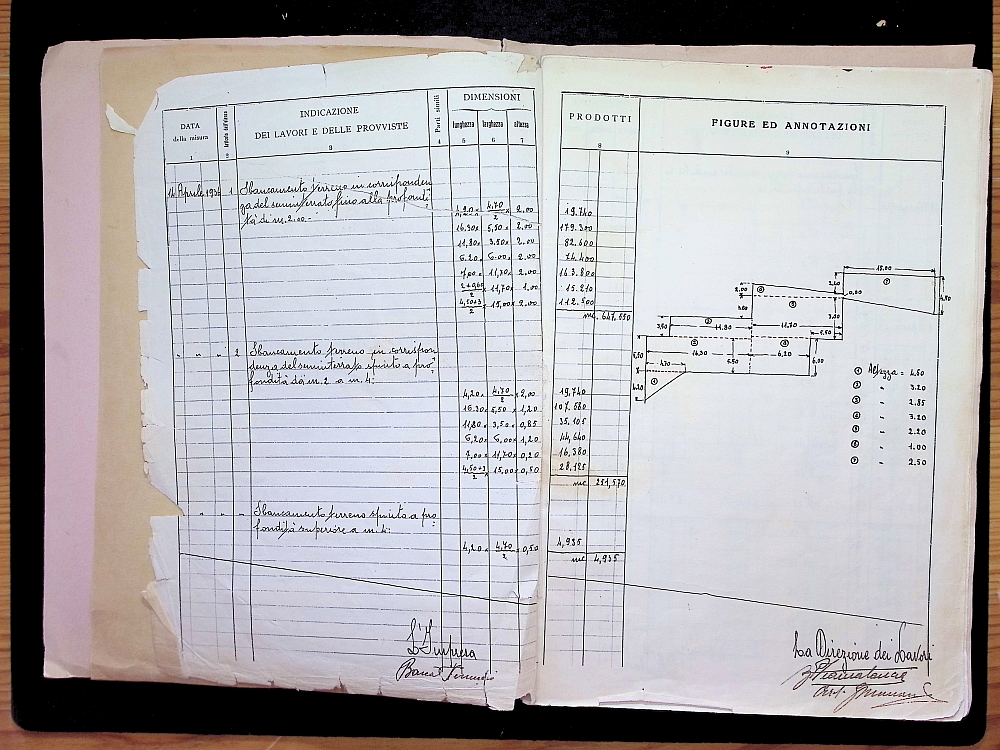 DATA
della misura
INDICAZIONE
DEI LAVORI E DELLE PROVVISTE
Parti simili
DIMENSIONI
lunghezza
larghezza
altezza
PRODOTTI
FIGURE ED ANNOTAZIONI
1 2 3 4 5 6 7 8 9
14 Aprile 1 Sbancamento terreno in corrisponden
za del seminterrato fino alla profondi
tà di m. 2.00 -
4,70/2 × 2.00 19.740
16.30 × 5,50 × 2.00 179.300
11,80 × 3.50 × 2.00 82.600
6.20 × 6.00 × 2.00 74.400
7,00 × 11,70 × 2.00 163.800
2+0,60/2 × 11,70 × 1.00 15.210
4,50+3/2 × 15,00 × 2.00 112.500
mc. 647.550
" " " 2 Sbancamento terreno in corrispon
denza del seminterrato spinto a pro
fondità da m. 2 a m. 4:
4,20 × 4,70/2 × 2,00 19,740
16.30 × 5,50 × 1,20 107.580
11,80 × 3,50 × 0,85 35.105
6,20 × 6,00 × 1,20 44,640
7,00 × 11,70 × 0,20 16,380
4,50+3/2 × 15,00 × 0,50 28,125
mc 251,570
" " " Sbancamento terreno spinto a pro
fondità superiore a m. 4:
4,20 × 4,70/2 × 0,50 4,935
mc 4,935
15.00
7
2.00
6
0,60
5
3,50
3
11.80
11,70
5.50
2
4
16,30
6,20
5,50
6,00
4,70
4,20
1
1 Altezza = 4.50
2 " 3.20
3 " 2.85
4 " 3.20
5 " 2.20
6 " 1.00
7 " 2.50
L'Impresa
La Direzione dei Lavori